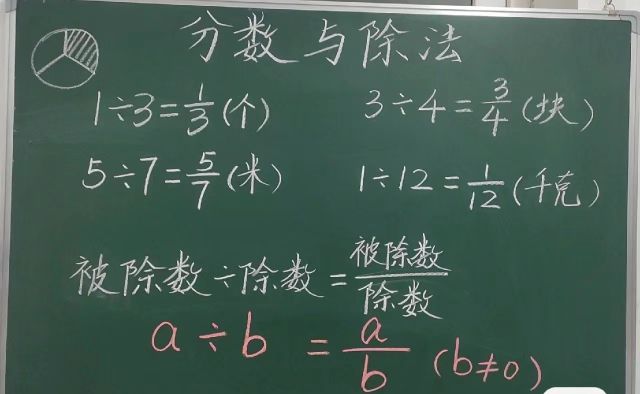 分数与除法
1÷3=1/3(个) 3÷4=3/4(块)
5÷7=5/7(米) 1÷12=1/12(千克)
被除数÷除数=被除数/除数
a÷b=a/b(b≠0)